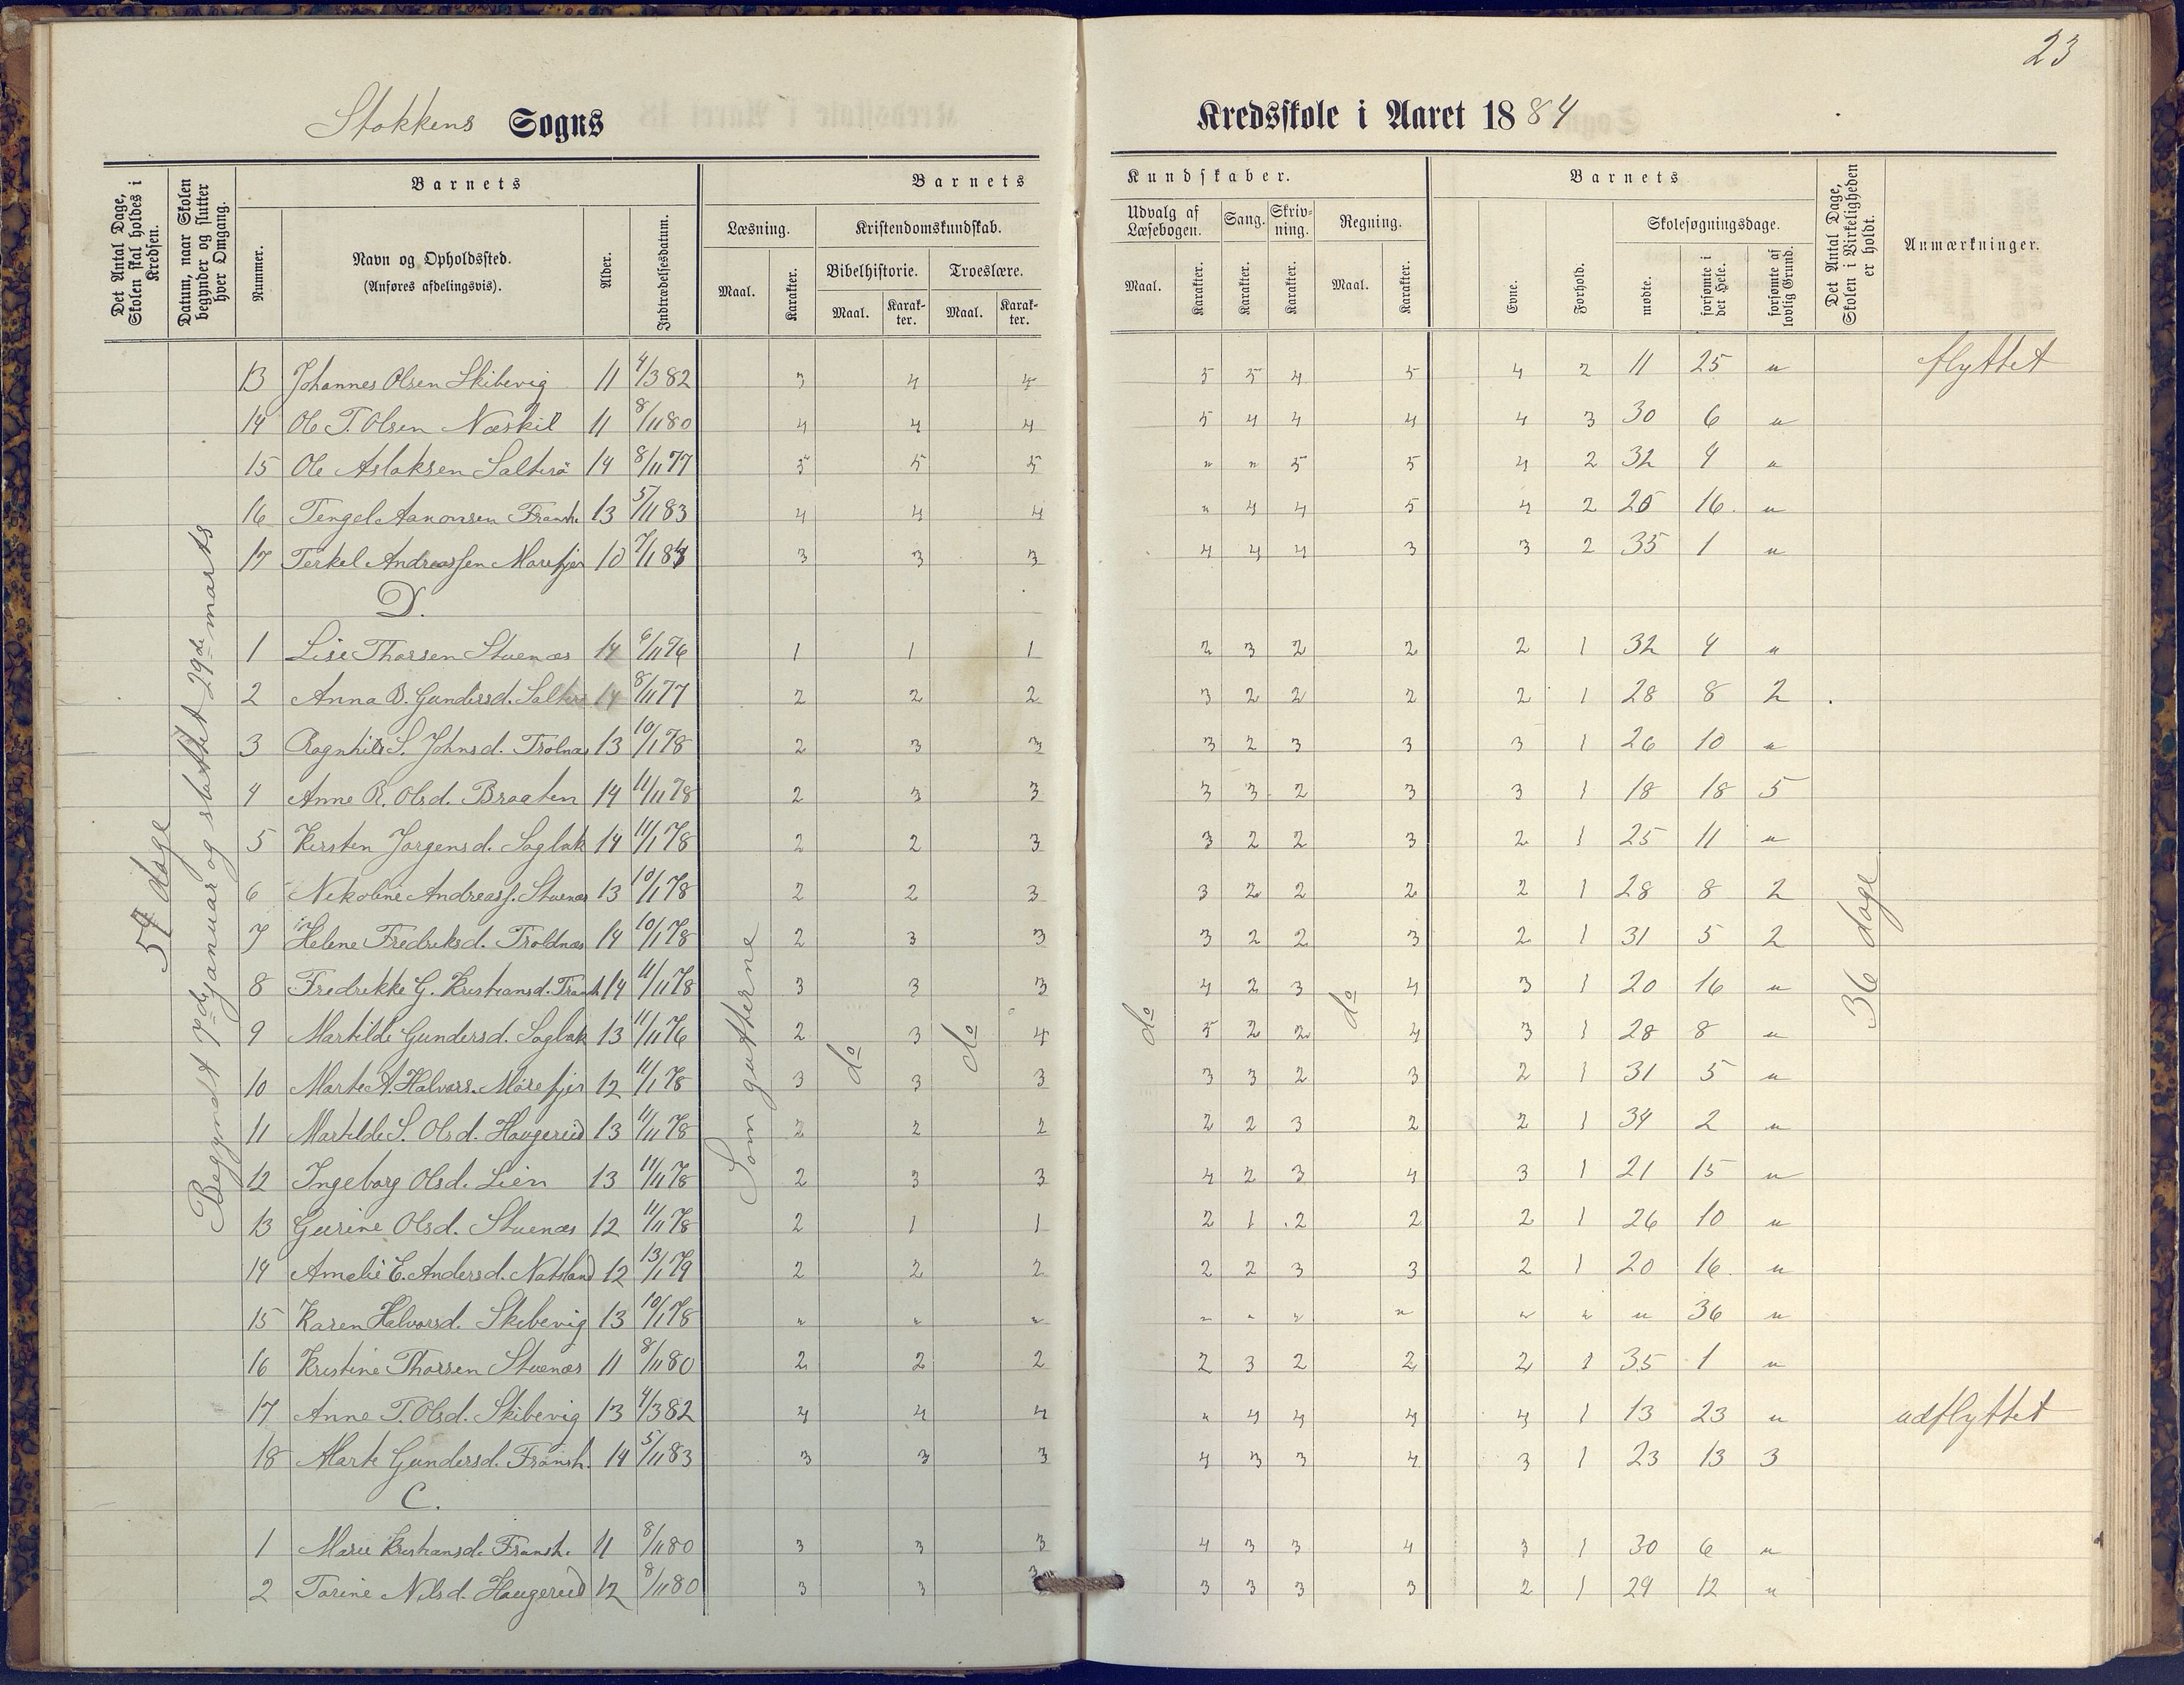 23
Stokkens Sogns Kredsskole i Aaret 1884
Det Antal Dage, Skolen skal holdes i Kredsen.
Datum, naar Skolen begynder og slutter hver Omgang.
Barnets
Nummer.
Navn og Opholdssted.
(Anføres afdelingsvis).
Alder.
Indtrædelsesdatum.
Barnets Kundskaber.
Læsning.
Maal. Karakter.
Kristendomskundskab.
Bibelhistorie. Troeslære.
Maal. Karakter. Maal. Karakter.
Udvalg af Læsebogen. Sang. Skrivning. Regning.
Maal. Karakter. Karakter. Karakter. Maal. Karakter.
Barnets
Evne. Forhold.
Skolesøgningsdage.
mødte. forsømte i det Hele. forsømte af lovlig Grund.
Det Antal Dage, Skolen i Virkeligheden er holdt.
Anmærkninger.
57 dage
Begyndt 7de januar og sluttet 29de marts
Som gutterne do do do do
36 dage
13 Johannes Olsen Skibevig 11 4/3 82 3 4 4 5 5 4 5 4 2 11 25 " flyttet
14 Ole T. Olsen Næskil 11 8/11 80 4 4 4 5 4 4 4 4 3 30 6 "
15 Ole Aslaksen Salterö 14 8/11 77 5 5 5 " " 5 5 4 2 32 4 "
16 Tengel Aanonsen Fransh. 13 5/11 83 4 4 4 " 4 4 5 4 2 20 16 "
17 Terkel Andreassen Morefjer 10 7/1 84 3 3 3 4 4 4 3 3 2 35 1 "
D.
1 Lise Thorsen Stuenæs 14 6/11 76 1 1 1 2 3 2 2 2 1 32 4 "
2 Anna B. Gundersd. Salterö 14 8/11 77 2 2 2 3 2 2 2 2 1 28 8 2
3 Ragnhild S. Johnsd. Trolnæs 13 10/1 78 2 3 3 3 2 3 3 3 1 26 10 "
4 Anne R. Olsd. Braaten 14 11/11 78 2 3 3 3 3 2 3 3 1 18 18 5
5 Kirsten Jørgensd. Sagbak 14 11/1 78 2 2 3 3 2 2 3 2 1 25 11 "
6 Nikoline Andreass. Stuenæs 13 10/1 78 2 2 3 3 2 2 2 2 1 28 8 2
7 Helene Fredriksd. Troldnæs 14 10/1 78 2 3 3 3 2 2 3 2 1 31 5 2
8 Fredrikke G. Kristiansd. Fransh. 14 11/11 78 3 3 3 4 2 3 4 3 1 20 16 "
9 Martilde Gundersd. Sagbak 13 11/11 76 2 3 4 5 2 2 4 3 1 28 8 "
10 Marte A. Halvors. Mörefjer 12 11/1 78 3 3 3 3 3 2 3 2 1 31 5 "
11 Martilde S. Olsd. Haugerud 13 11/11 78 2 2 2 2 2 3 2 2 1 34 2 "
12 Ingeborg Olsd. Lien 13 11/11 78 2 3 3 4 2 3 4 3 1 21 15 "
13 Gurine Olsd. Stuenæs 12 11/11 78 2 1 1 2 1 2 2 2 1 26 10 "
14 Amalie E. Andersd. Natsland 12 13/1 79 2 2 2 2 2 3 3 2 1 20 16 "
15 Karen Halvorsd. Skibevig 13 10/1 78 " " " " " " " " " " 36 "
16 Kristine Thorsen Stuenæs 11 8/11 80 2 2 2 2 3 2 2 2 1 35 1 "
17 Anne T. Olsd. Skibevig 13 4/3 82 4 4 4 " 4 4 4 4 1 13 23 " udflyttet
18 Marte Gundersd. Fransh. 14 5/11 83 3 3 3 4 3 3 4 3 1 23 13 3
C.
1 Marie Kristiansd. Fransh. 11 8/11 80 3 3 3 4 3 3 4 3 1 30 6 "
2 Torine Nilsd. Haugerud 12 8/11 80 3 3 3 3 3 3 3 2 1 29 12 "